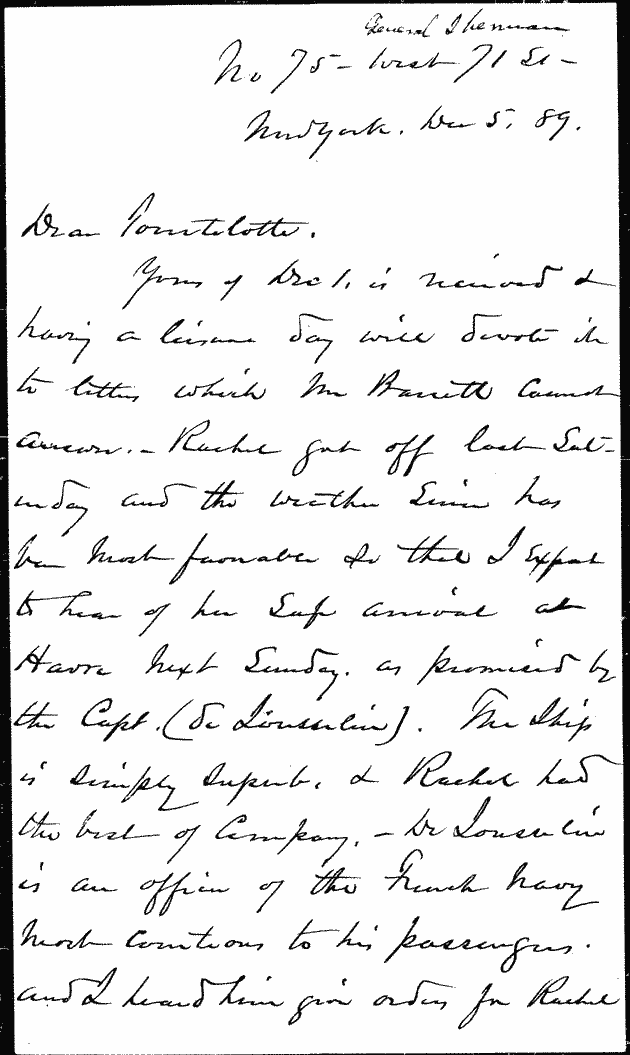 General Sherman
No 75 - West 71 St -
New York. Dec 5, 89.
Dear Tourtelotte.
Yours of Dec 1, is received &
having a leisure day will devote it
to letters which Mr Barrett cannot
answer. - Rachel got off last Sat-
urday and the weather since has
been most favorable so that I expect
to hear of her safe arrival at
Havre next Sunday. as promised by
the Capt. (de Jousselin). The Ship
is simply superb. & Rachel had
the best of Company. - De Jousselin
is an officer of the French Navy
most courteous to his passengers.
and I heard him give orders for Rachel